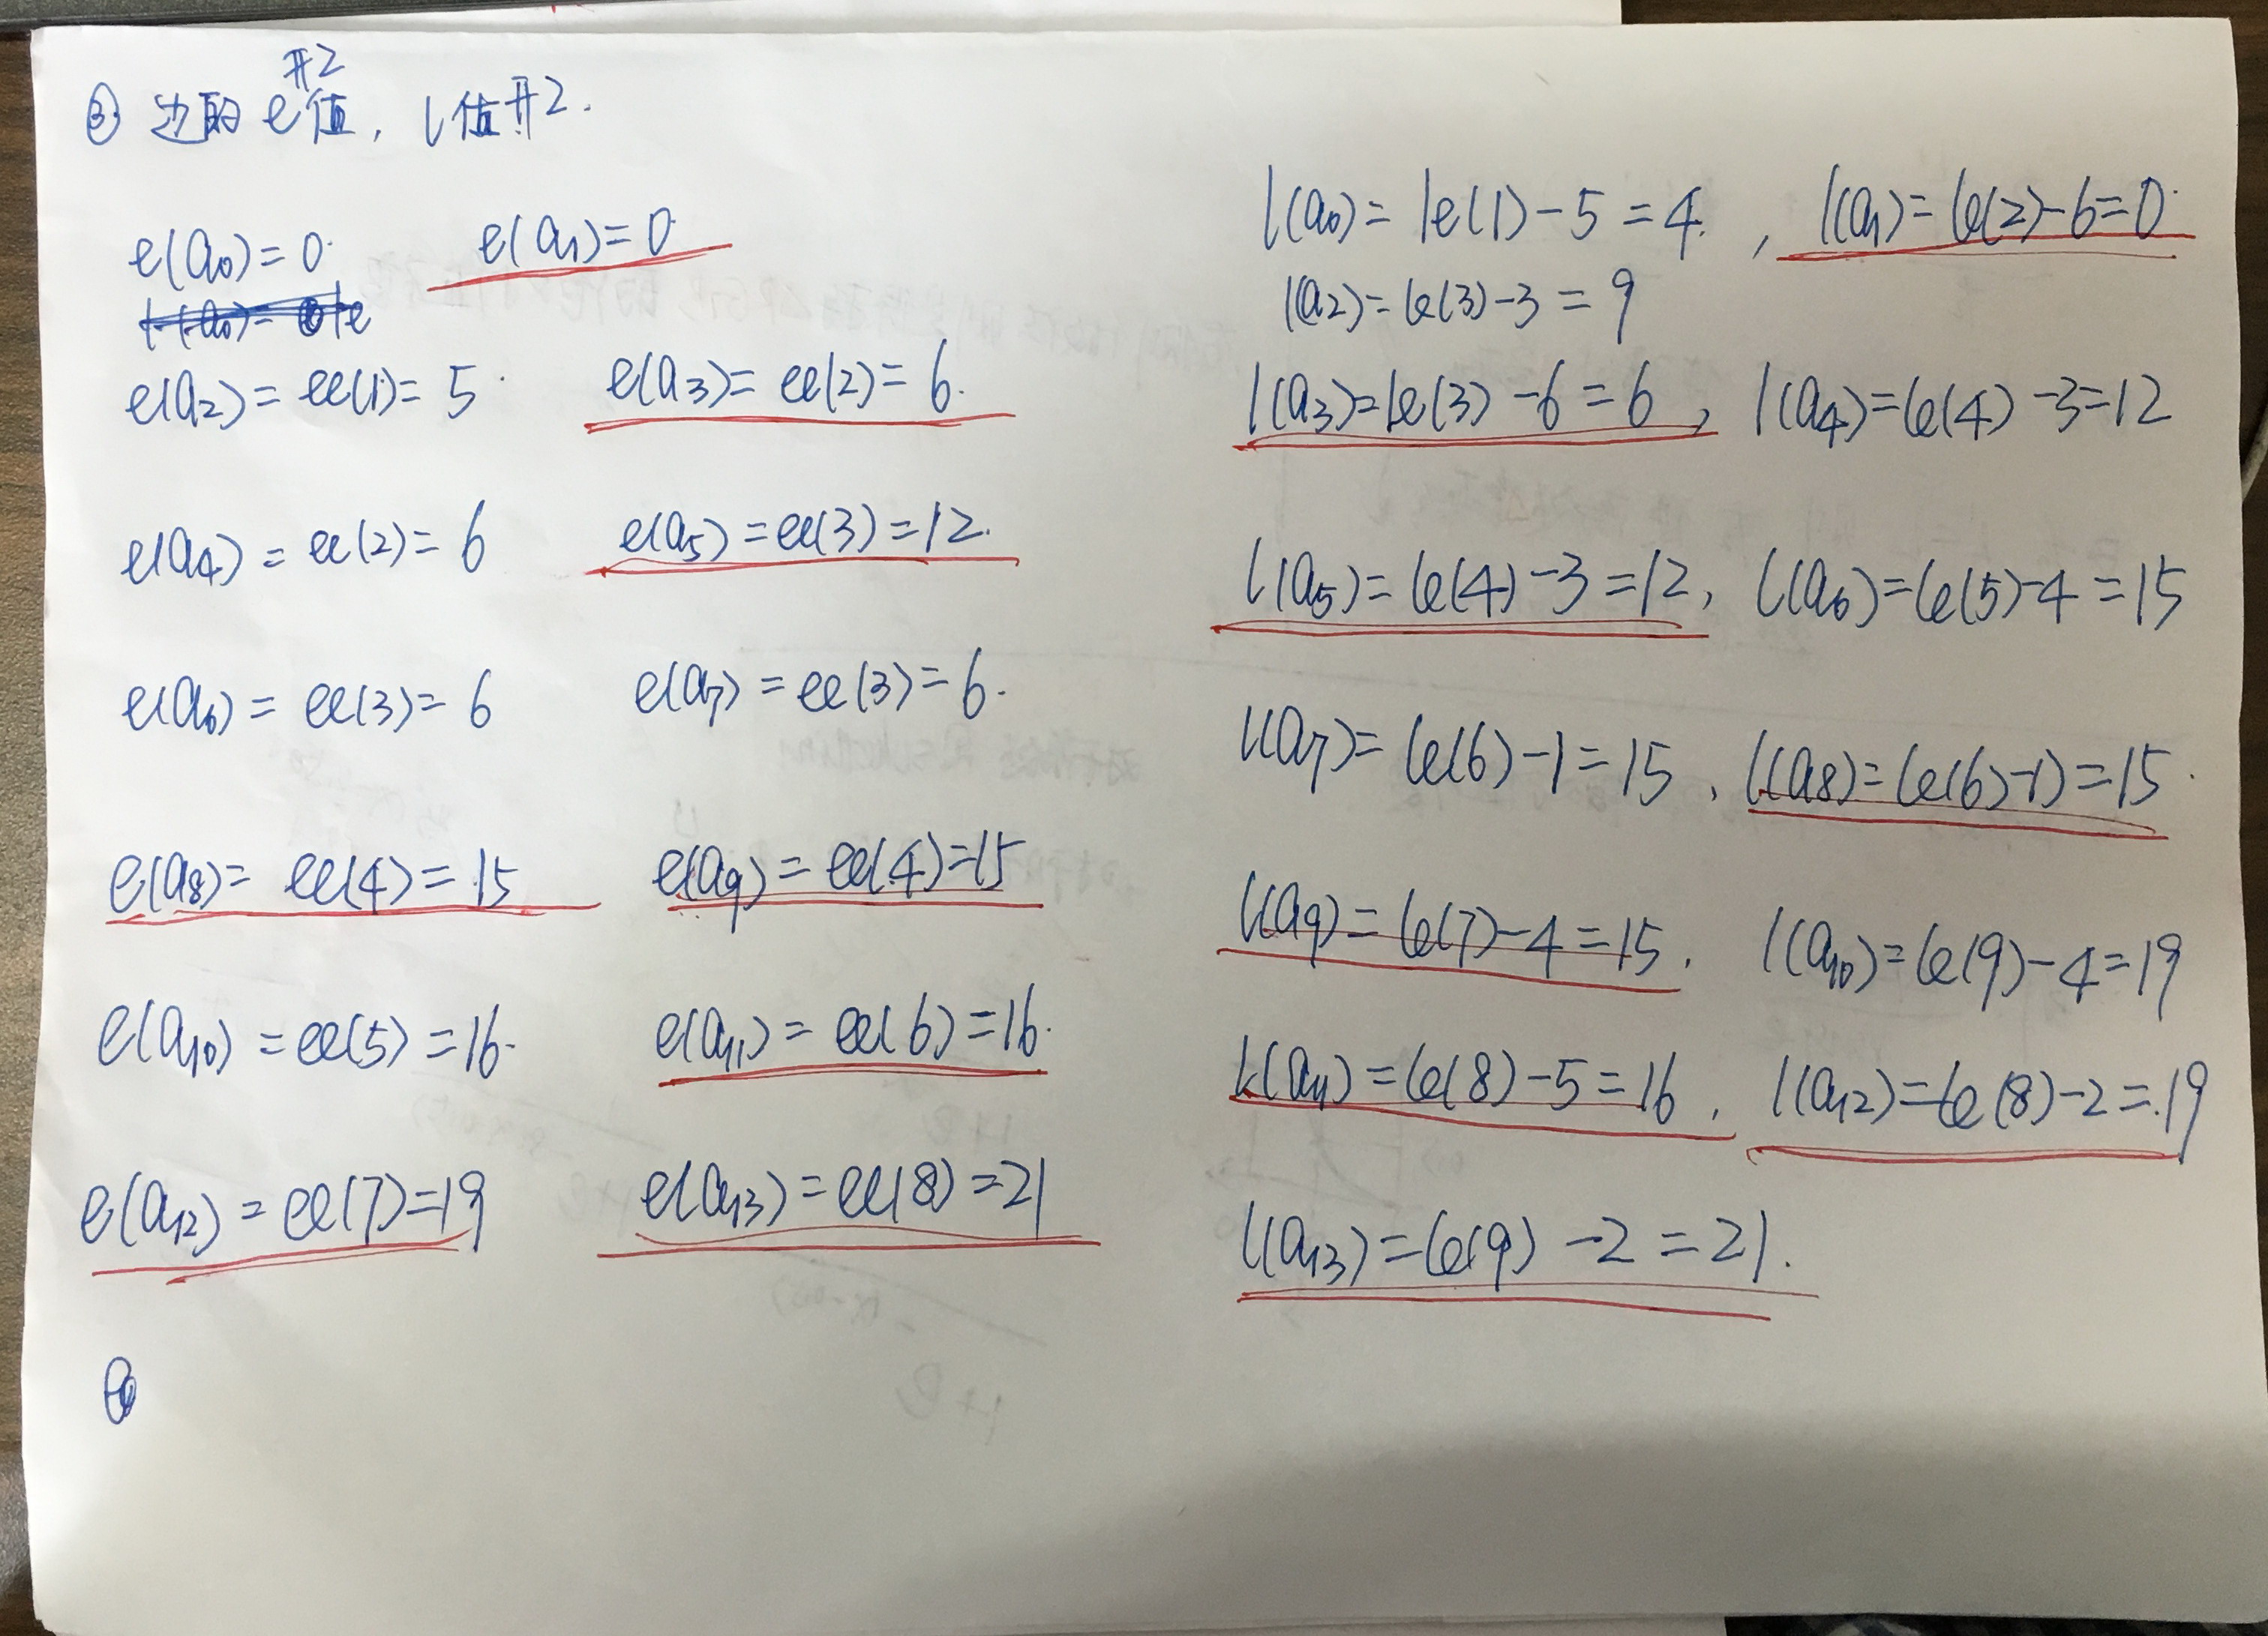 ③ 边的e值, l值开2.
开2
e(a0)=0. e(a1)=0
e(a2)=ee(1)=5 e(a3)=ee(2)=6.
e(a4)=ee(2)=6 e(a5)=ee(3)=12.
e(a6)=ee(3)=6 e(a7)=ee(3)=6.
e(a8)=ee(4)=15 e(a9)=ee(4)=15
e(a10)=ee(5)=16. e(a11)=ee(6)=16.
e(a12)=ee(7)=19 e(a13)=ee(8)=21
l(a0)=le(1)-5=4. , l(a1)=le(2)-6=0.
l(a2)=le(3)-3=9
l(a3)=le(3)-6=6, l(a4)=le(4)-3=12
l(a5)=le(4)-3=12, l(a6)=le(5)-4=15
l(a7)=le(6)-1=15, l(a8)=le(6)-1)=15.
l(a9)=le(7)-4=15. l(a10)=le(9)-4=19
l(a11)=le(8)-5=16. l(a12)=le(8)-2=19
l(a13)=le(9)-2=21.